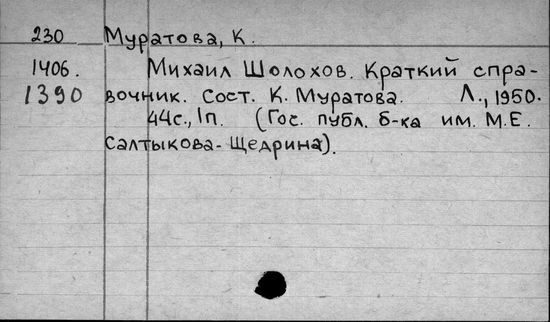 230 Муратова, К.
1406. Михаил Шолохов. Краткий спра-
1390 вочник. Сост. К. Муратова. Л., 1950.
44с., 1п. (Гос. публ. б-ка им. М.Е.
Салтыкова-Щедрина).